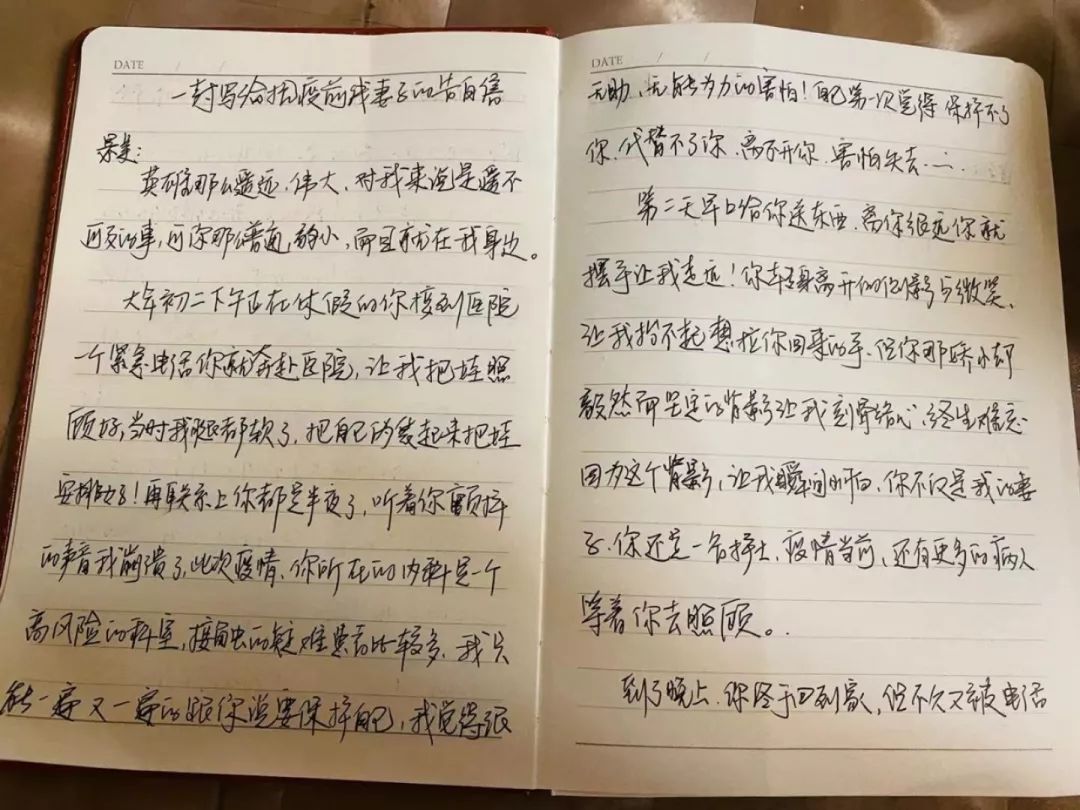 DATE / /
一封写给抗疫前线妻子的告白信
英雄那么遥远、伟大、对我来说是遥不
可及的事,可你那么普通,弱小,而且就在我身边。
大年初二下午正在休假的你接到医院
一个紧急电话你就奔赴医院,让我把娃照
顾好,当时我腿都软了,把自己的装起来把娃
安排好了!再联系上你都是半夜了,听着你颤抖
的声音我崩溃了,此次疫情、你所在的内科是一个
高风险的科室,接触的疑难患者比较多、我只
能一遍又一遍的跟你说要保护自己,我觉得很
DATE / /
无助、无能为力的害怕!自己第一次觉得保护不了
你、代替不了你、离不开你、害怕失去……
第二天早上给你送东西、离你很远你就
摆手让我走远!你转身离开的侧影与微笑、
让我抬不起想拉你回来的手、但你那娇小却
毅然而坚定的背影让我刻骨铭心、终生难忘
因为这个背影,让我瞬间明白、你不仅是我的妻
子、你还是一名护士、疫情当前,还有更多的病人
等着你去照顾。
到了晚上、你终于回到家、但不久又被电话